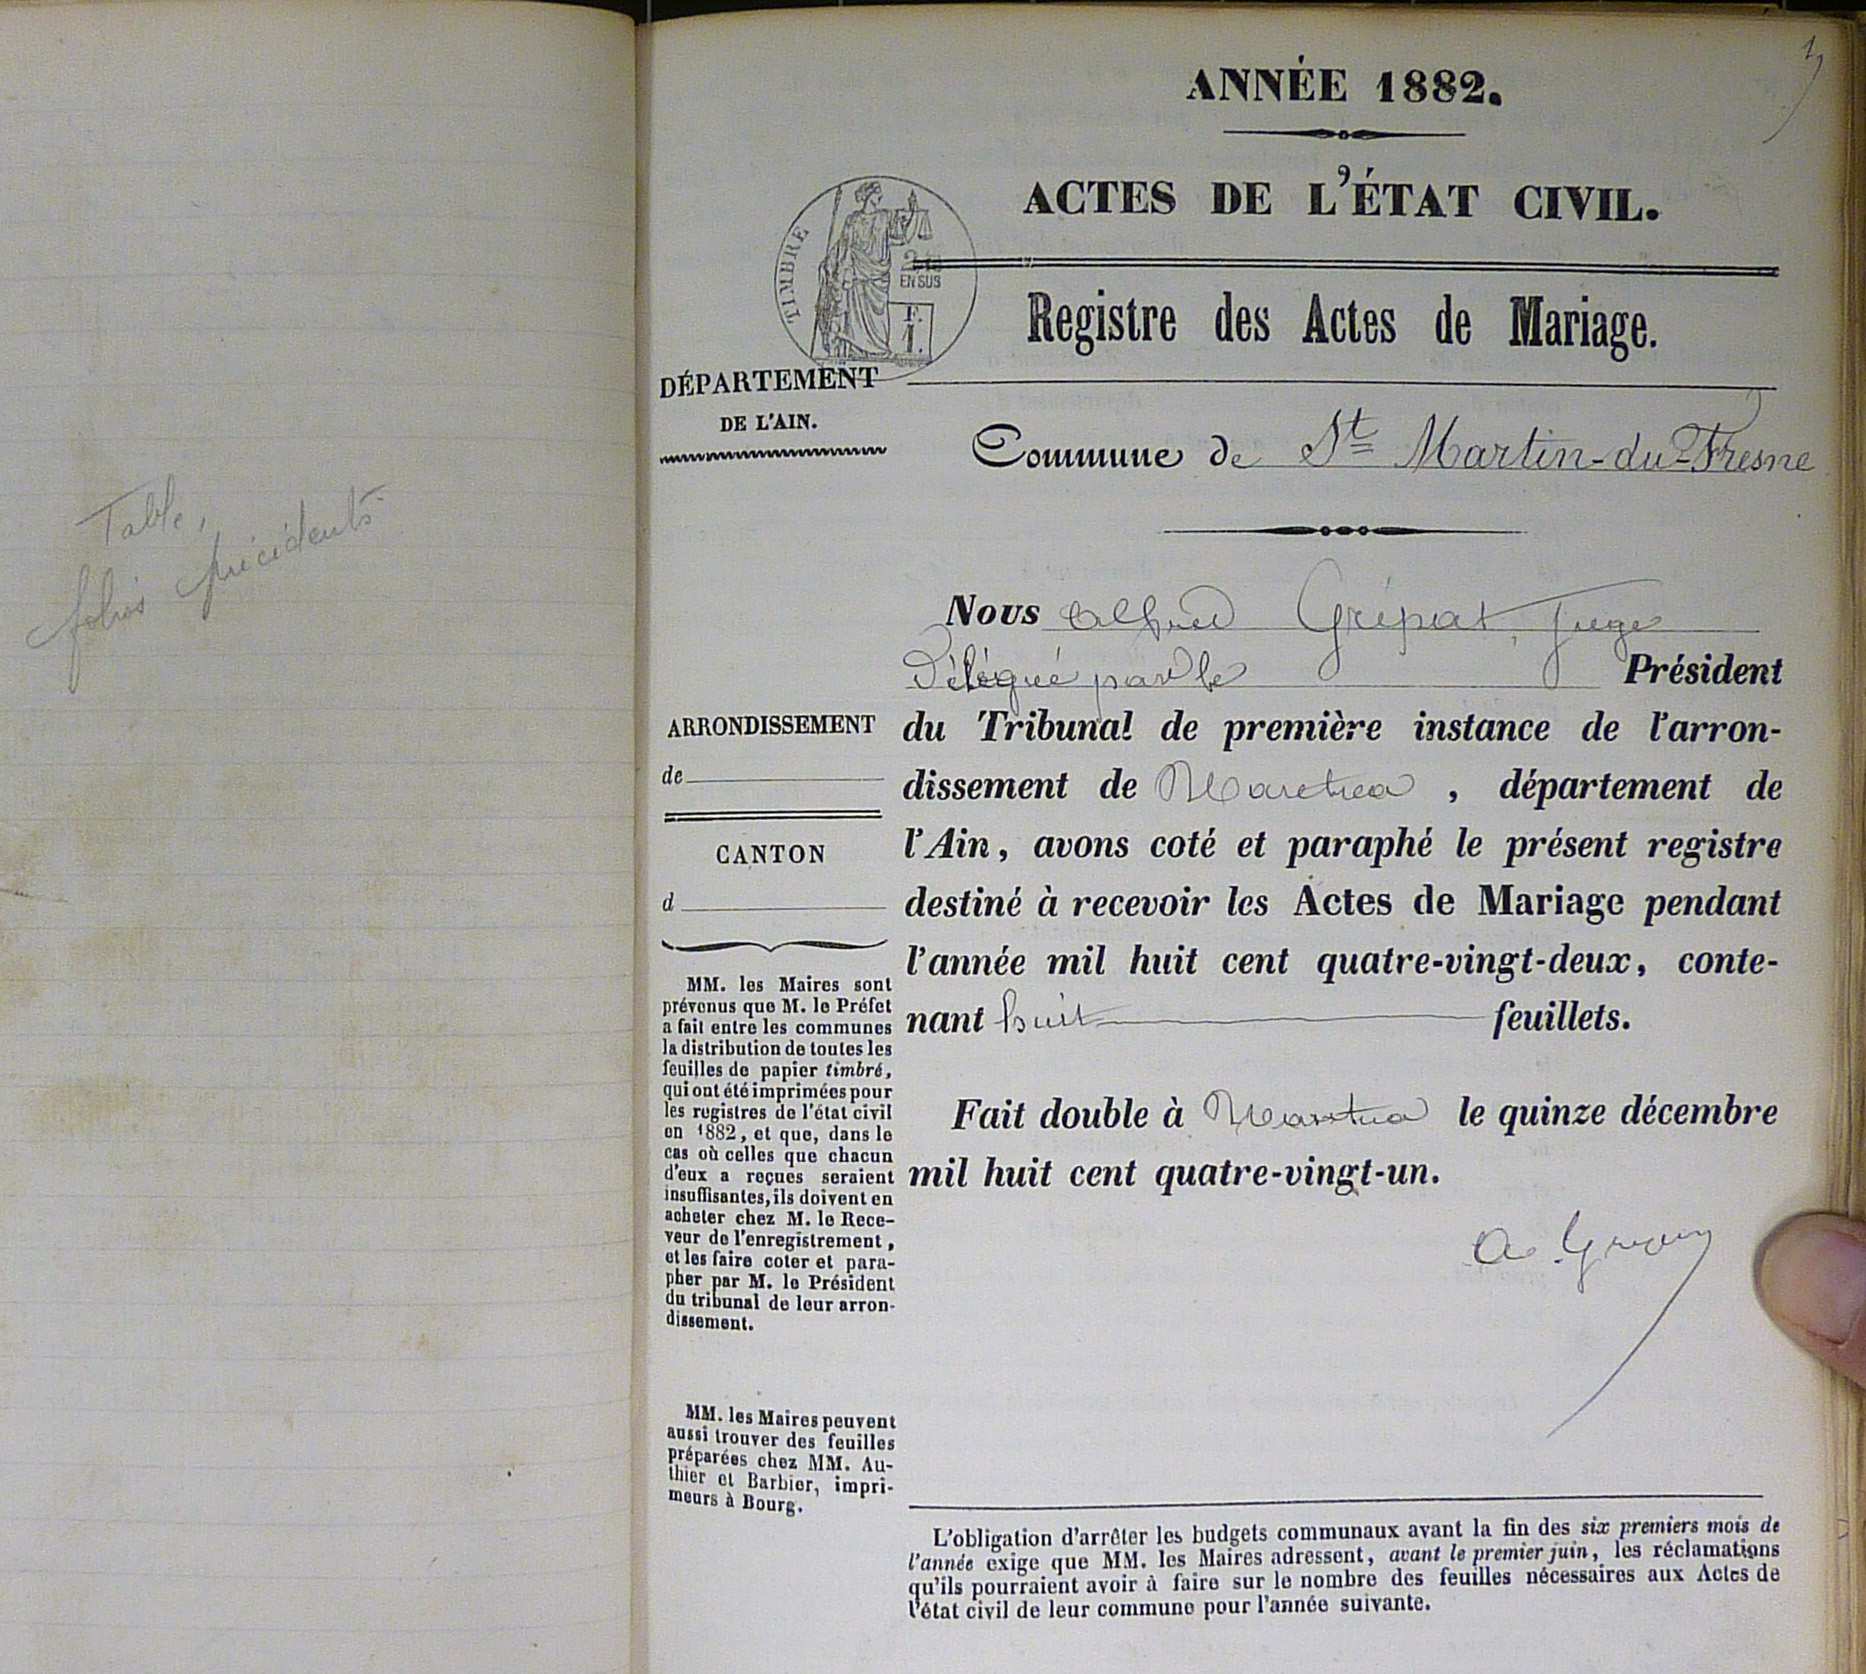 Table,
folios précédents
1
ANNÉE 1882.
ACTES DE L'ÉTAT CIVIL.
TIMBRE
2/10
EN SUS
F.
1.
Registre des Actes de Mariage.
DÉPARTEMENT
DE L'AIN.
Commune de St Martin-du-Fresne
Nous Alfred Grépat, Juge
Délégué par le Président
du Tribunal de première instance de l'arron-
dissement de Nantua, département de
l'Ain, avons coté et paraphé le présent registre
destiné à recevoir les Actes de Mariage pendant
l'année mil huit cent quatre-vingt-deux, conte-
nant huit feuillets.
Fait double à Nantua le quinze décembre
mil huit cent quatre-vingt-un.
ARRONDISSEMENT
de
CANTON
d
MM. les Maires sont
prévenus que M. le Préfet
a fait entre les communes
la distribution de toutes les
feuilles de papier timbré,
qui ont été imprimées pour
les registres de l'état civil
en 1882, et que, dans le
cas où celles que chacun
d'eux a reçues seraient
insuffisantes, ils doivent en
acheter chez M. le Rece-
veur de l'enregistrement,
et les faire coter et para-
pher par M. le Président
du tribunal de leur arron-
dissement.
MM. les Maires peuvent
aussi trouver des feuilles
préparées chez MM. Au-
thier et Barbier, impri-
meurs à Bourg.
L'obligation d'arrêter les budgets communaux avant la fin des six premiers mois de
l'année exige que MM. les Maires adressent, avant le premier juin, les réclamations
qu'ils pourraient avoir à faire sur le nombre des feuilles nécessaires aux Actes de
l'état civil de leur commune pour l'année suivante.